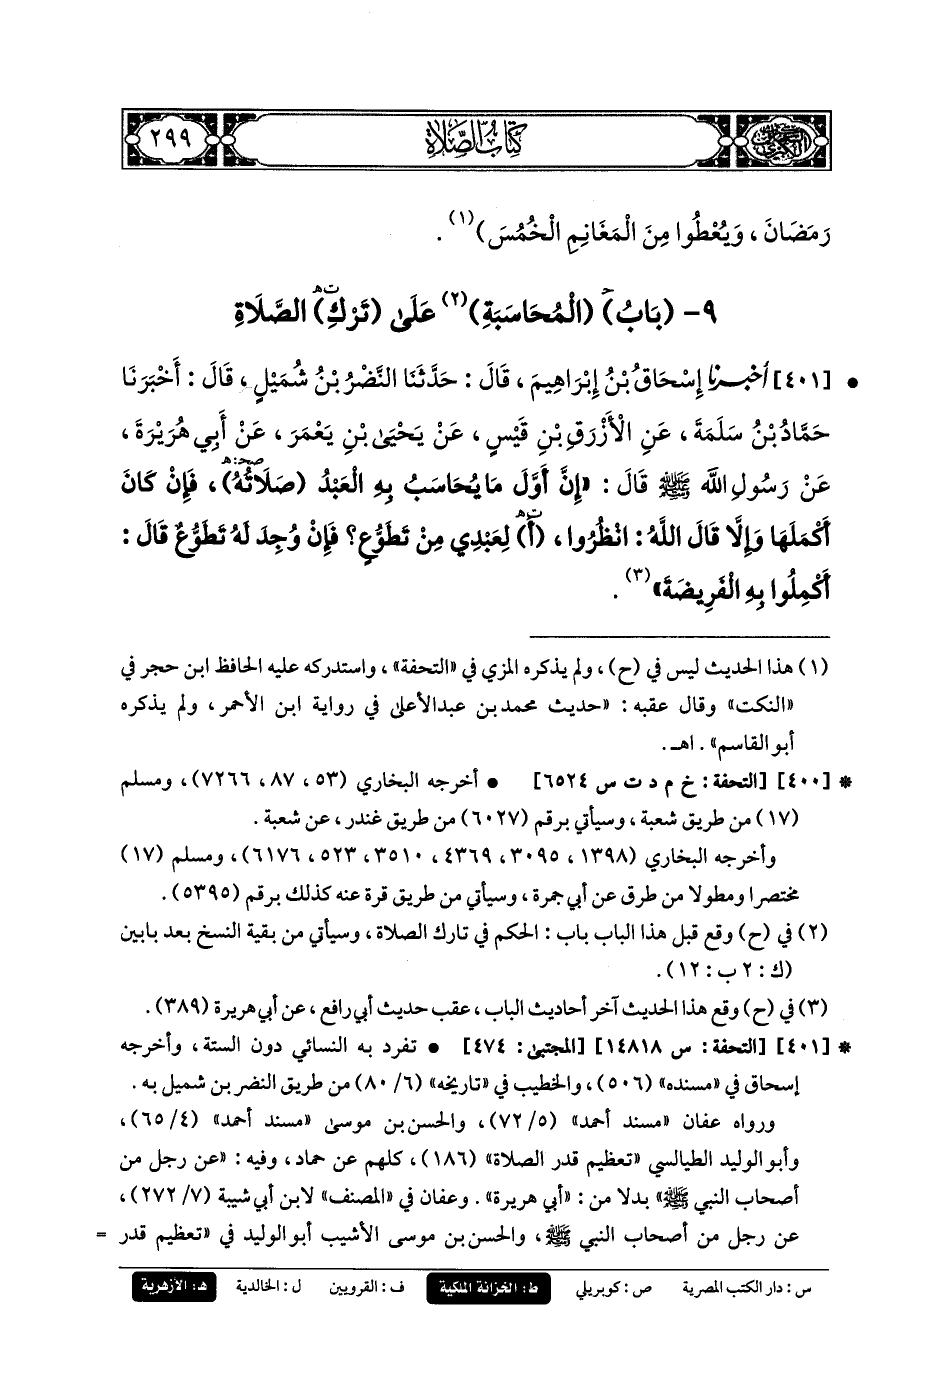 ٢٩٩
كتاب الصلاة
رَمَضَانَ ، وَيُعْطُوا مِنَ الْمَغَانِمِ الْخُمُسَ)(١) .
٩- (بَابُ) (الْمُحَاسَبَةِ)(٢) عَلَى (تَرْكِ) الصَّلَاةِ
• [٤٠١] أخبرنا إِسْحَاقُ بْنُ إِبْرَاهِيمَ ، قَالَ : حَدَّثَنَا النَّضْرُ بْنُ شُمَيْلٍ ، قَالَ : أَخْبَرَنَا
حَمَّادُ بْنُ سَلَمَةَ ، عَنِ الْأَزْرَقِ بْنِ قَيْسٍ ، عَنْ يَحْيَى بْنِ يَعْمَرَ ، عَنْ أَبِي هُرَيْرَةَ ،
عَنْ رَسُولِ اللَّهِ ﷺ قَالَ : «إِنَّ أَوَّلَ مَا يُحَاسَبُ بِهِ الْعَبْدُ (صَلَاتُهُ) ، فَإِنْ كَانَ
أَكْمَلَهَا وَإِلَّا قَالَ اللَّهُ : انْظُرُوا ، (أَ) لِعَبْدِي مِنْ تَطَوُّعٍ؟ فَإِنْ وُجِدَ لَهُ تَطَوُّعٌ قَالَ :
أَكْمِلُوا بِهِ الْفَرِيضَةَ»(٣) .
(١) هذا الحديث ليس في (ح) ، ولم يذكره المزي في «التحفة» ، واستدركه عليه الحافظ ابن حجر في
«النكت» وقال عقبه : «حديث محمد بن عبدالأعلى في رواية ابن الأحمر ، ولم يذكره
أبو القاسم» . اهـ .
* [٤٠٠] [التحفة : خ م د ت س ٦٥٢٤] • أخرجه البخاري (٥٣ ، ٨٧ ، ٧٢٦٦) ، ومسلم
(١٧) من طريق شعبة ، وسيأتي برقم (٦٠٢٧) من طريق غندر ، عن شعبة .
وأخرجه البخاري (١٣٩٨ ، ٣٠٩٥ ، ٤٣٦٩ ، ٣٥١٠ ، ٥٢٣ ، ٦١٧٦) ، ومسلم (١٧)
مختصرا ومطولا من طرق عن أبي جمرة ، وسيأتي من طريق قرة عنه كذلك برقم (٥٣٩٥) .
(٢) في (ح) وقع قبل هذا الباب باب : الحكم في تارك الصلاة ، وسيأتي من بقية النسخ بعد بابين
(ك : ٢ ب : ١٢) .
(٣) في (ح) وقع هذا الحديث آخر أحاديث الباب ، عقب حديث أبي رافع ، عن أبي هريرة (٣٨٩) .
* [٤٠١] [التحفة : س ١٤٨١٨] [المجتبى : ٤٧٤] • تفرد به النسائي دون الستة ، وأخرجه
إسحاق في «مسنده» (٥٠٦) ، والخطيب في «تاريخه» (٦/ ٨٠) من طريق النضر بن شميل به .
ورواه عفان «مسند أحمد» (٥/ ٧٢) ، والحسن بن موسى «مسند أحمد» (٤/ ٦٥) ،
وأبو الوليد الطيالسي «تعظيم قدر الصلاة» (١٨٦) ، كلهم عن حماد ، وفيه : «عن رجل من
أصحاب النبي ﷺ» بدلا من : «أبي هريرة» . وعفان في «المصنف» لابن أبي شيبة (٧/ ٢٧٢) ،
عن رجل من أصحاب النبي ﷺ ، والحسن بن موسى الأشيب أبو الوليد في «تعظيم قدر =
س : دار الكتب المصرية ص : كوبريلي ط : الخزانة الملكية ف : القرويين ل : الخالدية هـ : الأزهرية